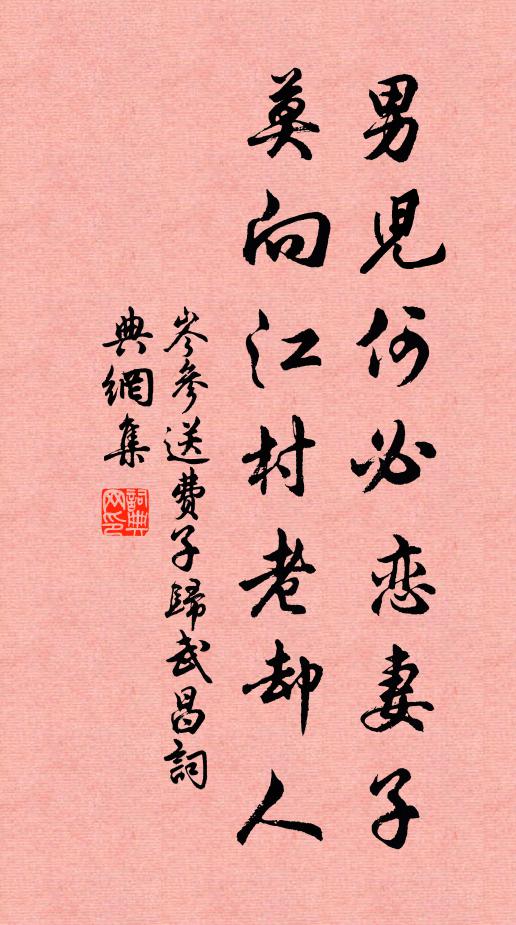 男兒何必恋妻子
莫向江村老却人
岑參送費子歸武昌詞
典網集
詞典网印